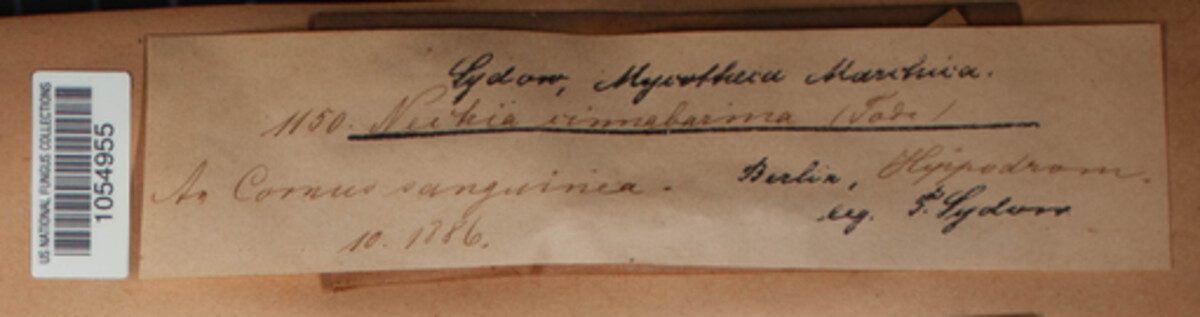 US NATIONAL FUNGUS COLLECTIONS
1054955
Sydow, Mycotheca Marchica.
1150. Nectria cinnabarina (Tode)
An Cornus sanguinea.
Berlin, Hippodrom.
10. 1886.
leg. P. Sydow